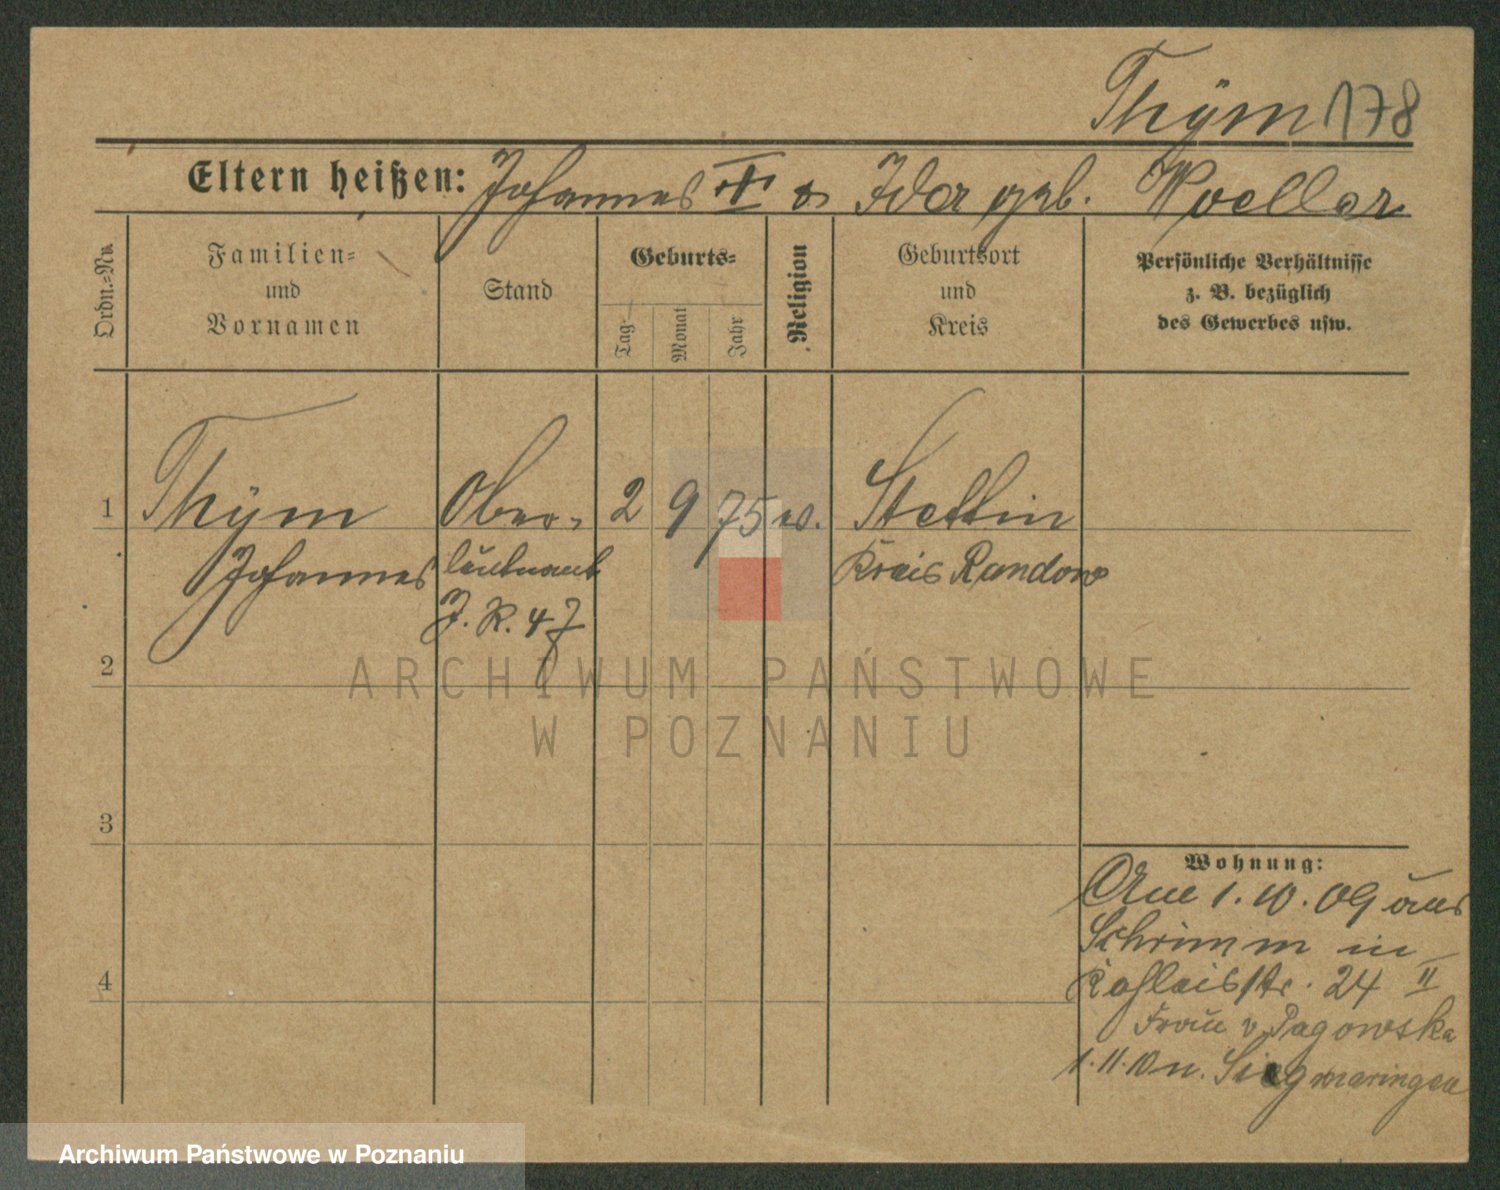 Thÿm 178
Eltern heißen: Johannes & Ida geb.
Ordn.=Nr.
Familien=
und
Vornamen
Stand
Geburts=
Tag
Monat
Jahr
Religion
Geburtsort
und
Kreis
Persönliche Verhältnisse
z. B. bezüglich
des Gewerbes usw.
1 Thÿm Ober- 2 9 75 Stettin
Johannes leutnant Kreis Randow
J. R. 47
2
3
4
Wohnung:
Am 1.10.09 aus
Schrimm in
24 II
Frau v. Pagowska
1.11.10 n. Siegmaringen
ARCHIWUM PAŃSTWOWE
W POZNANIU
Archiwum Państwowe w Poznaniu